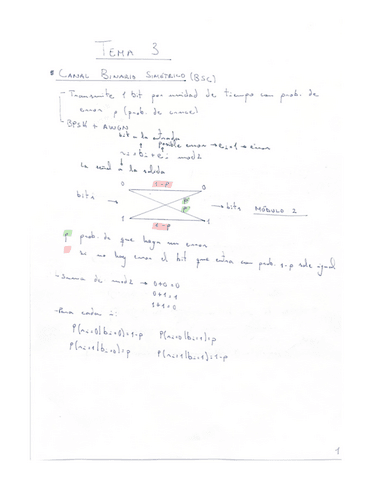 TEMA 3
* CANAL BINARIO SIMÉTRICO (BSC)
- Transmite 1 bit por unidad de tiempo con prob. de
error p (prob. de cruce)
- BPSK + AWGN
bit a la entrada
posible error → ei=1 → error
ri = bi + ei mod 2
La señal a la salida
0 1-p 0
bits → p → bits MÓDULO 2
p
1 1-p 1
p prob. de que haya un error
Si no hay error el bit que entra con prob. 1-p sale igual
- Suma de mod 2 → 0+0=0
0+1=1
1+1=0
- Para cada i:
P(ri=0|bi=0)=1-p P(ri=0|bi=1)=p
P(ri=1|bi=0)=p P(ri=1|bi=1)=1-p
1